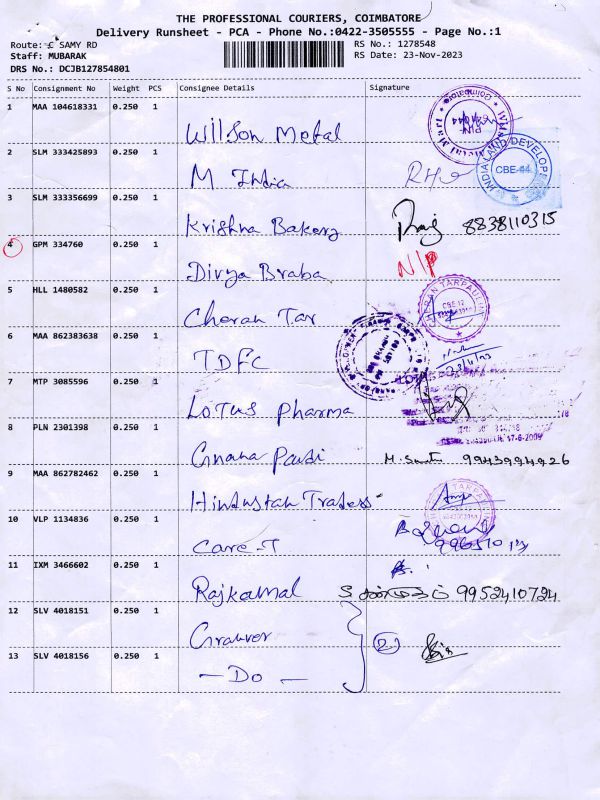 THE PROFESSIONAL COURIERS, COIMBATORE
Delivery Runsheet - PCA - Phone No.:0422-3505555 - Page No.:1
Route: C SAMY RD
RS No.: 1278548
Staff: MUBARAK
RS Date: 23-Nov-2023
DRS No.: DCJB127854801
S No Consignment No Weight PCS Consignee Details Signature
1 MAA 104618331 0.250 1
Wilson Metal
2 SLM 333425893 0.250 1
M. India
INDIA LAND DEVELOPE
CBE-44
3 SLM 333356699 0.250 1
Krishna Bakery 8838110315
4 GPM 334760 0.250 1
Divya Braba N/P
5 HLL 1480582 0.250 1
Cheran Tar
CHERAN TARPAULIN
6 MAA 862383638 0.250 1
TDFC
7 MTP 3085596 0.250 1
Lotus Pharma
8 PLN 2301398 0.250 1
Gnana Pandi 9943994926
9 MAA 862782462 0.250 1
Hindustan Traders
10 VLP 1134836 0.250 1
Care.T
11 IXM 3466602 0.250 1
Rajkamal 9952410724
12 SLV 4018151 0.250 1
2
13 SLV 4018156 0.250 1
— Do —